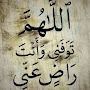 اللَّهُمَّ
تَوَفَّنِي وَأَنْتَ
رَاضٍ عَنِّي